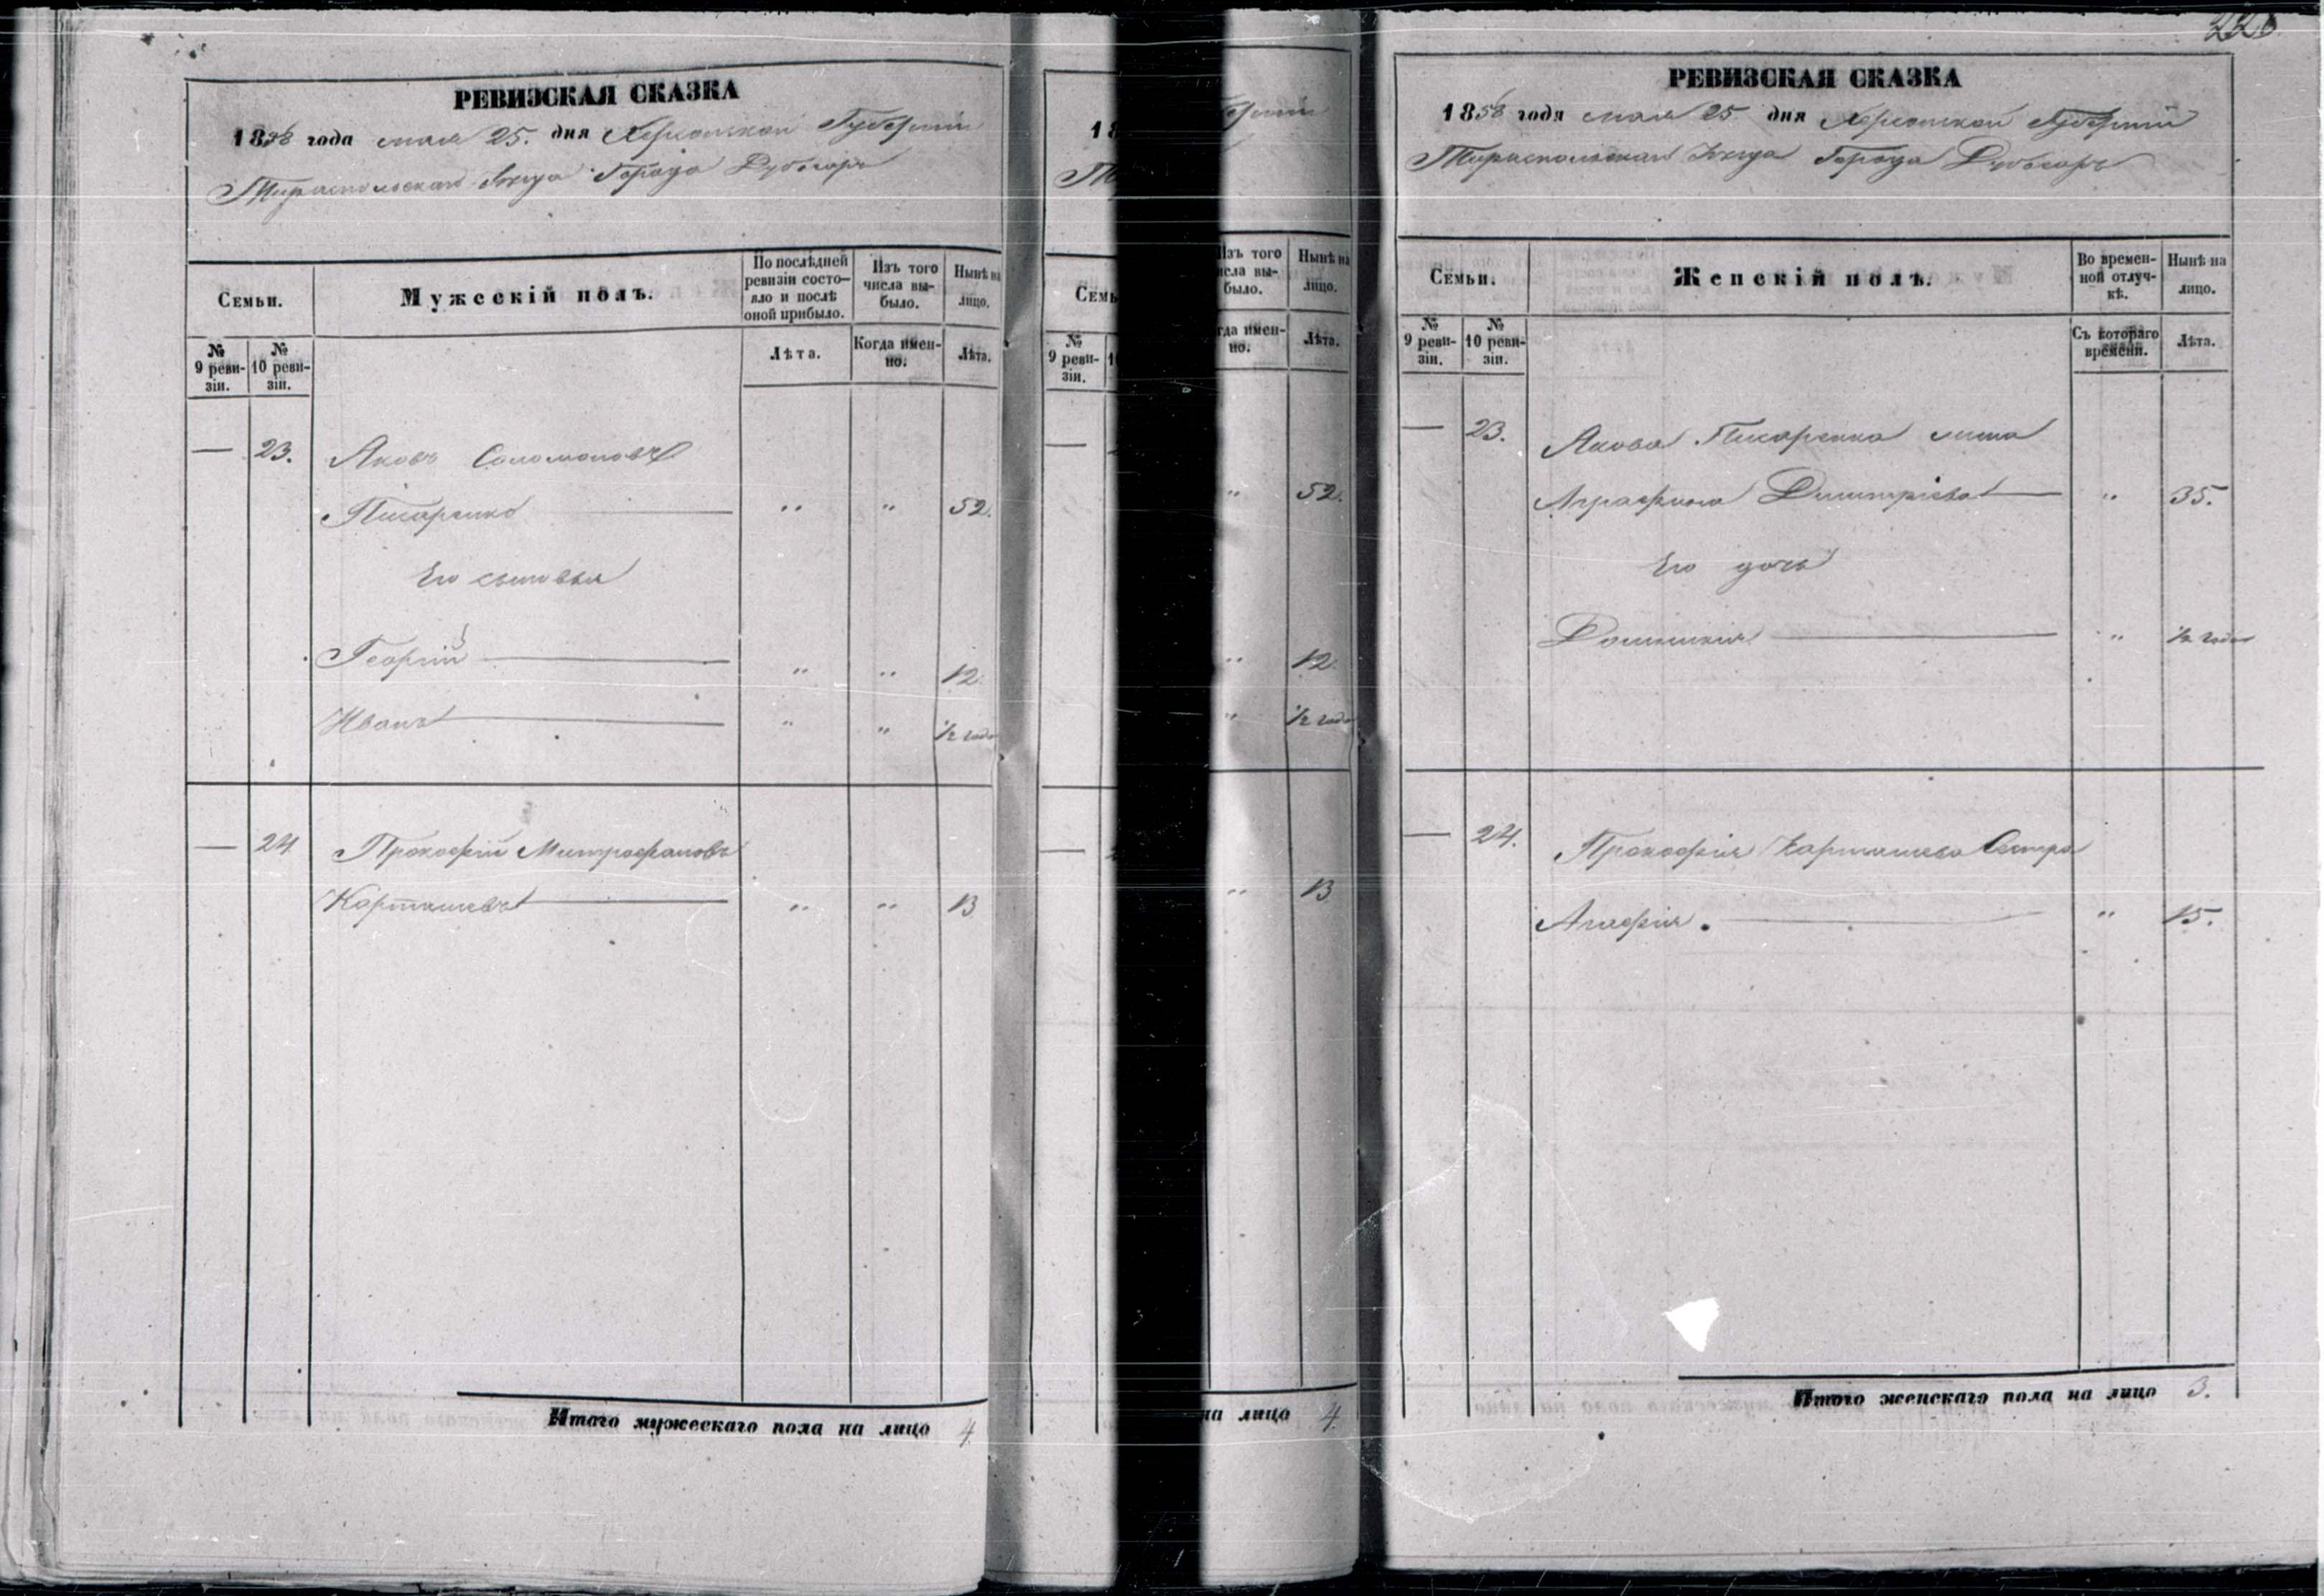 РЕВИЗСКАЯ СКАЗКА
1858 года мая 25. дня Херсонской Губерніи
Тираспольскаго Уѣзда Города Дубосаръ
Семьи.
Мужескій полъ.
По послѣдней ревизіи состо-
яло и послѣ
оной прибыло.
Изъ того
числа вы-
было.
Нынѣ на
лицо.
№
9 реви-
зіи.
№
10 реви-
зіи.
Лѣта.
Когда имен-
но.
Лѣта.
— 23. Яковъ Соломоновъ
Писаренко — " " 52.
Его сыновья
Георгій — " " 12.
Иванъ — " " 1/2 года
— 24 Прокофій Митрофановъ
Карташевъ — " " 13
Итого мужескаго пола на лицо 4.
18
Семь
№
9 реви-
зіи.
Изъ того
исла вы-
было.
Нынѣ на
лицо.
гда имен-
но.
Лѣта.
" 52.
" 12.
" 1/2 года
" 13
на лицо 4.
226
РЕВИЗСКАЯ СКАЗКА
1858 года мая 25. дня Херсонской Губерніи
Тираспольскаго Уѣзда Города Дубосаръ
Семьи.
Женскій полъ.
Во времен-
ной отлуч-
кѣ.
Нынѣ на
лицо.
№
9 реви-
зіи.
№
10 реви-
зіи.
Съ котораго
времени.
Лѣта.
— 23. Якова Писаренка жена
Аграфина Димитріева — " 35.
Его дочь
Домникія — " 1/2 года
— 24. Прокофія Карташева Сестра
Агафія. — " 15.
Итого женскаго пола на лицо 3.